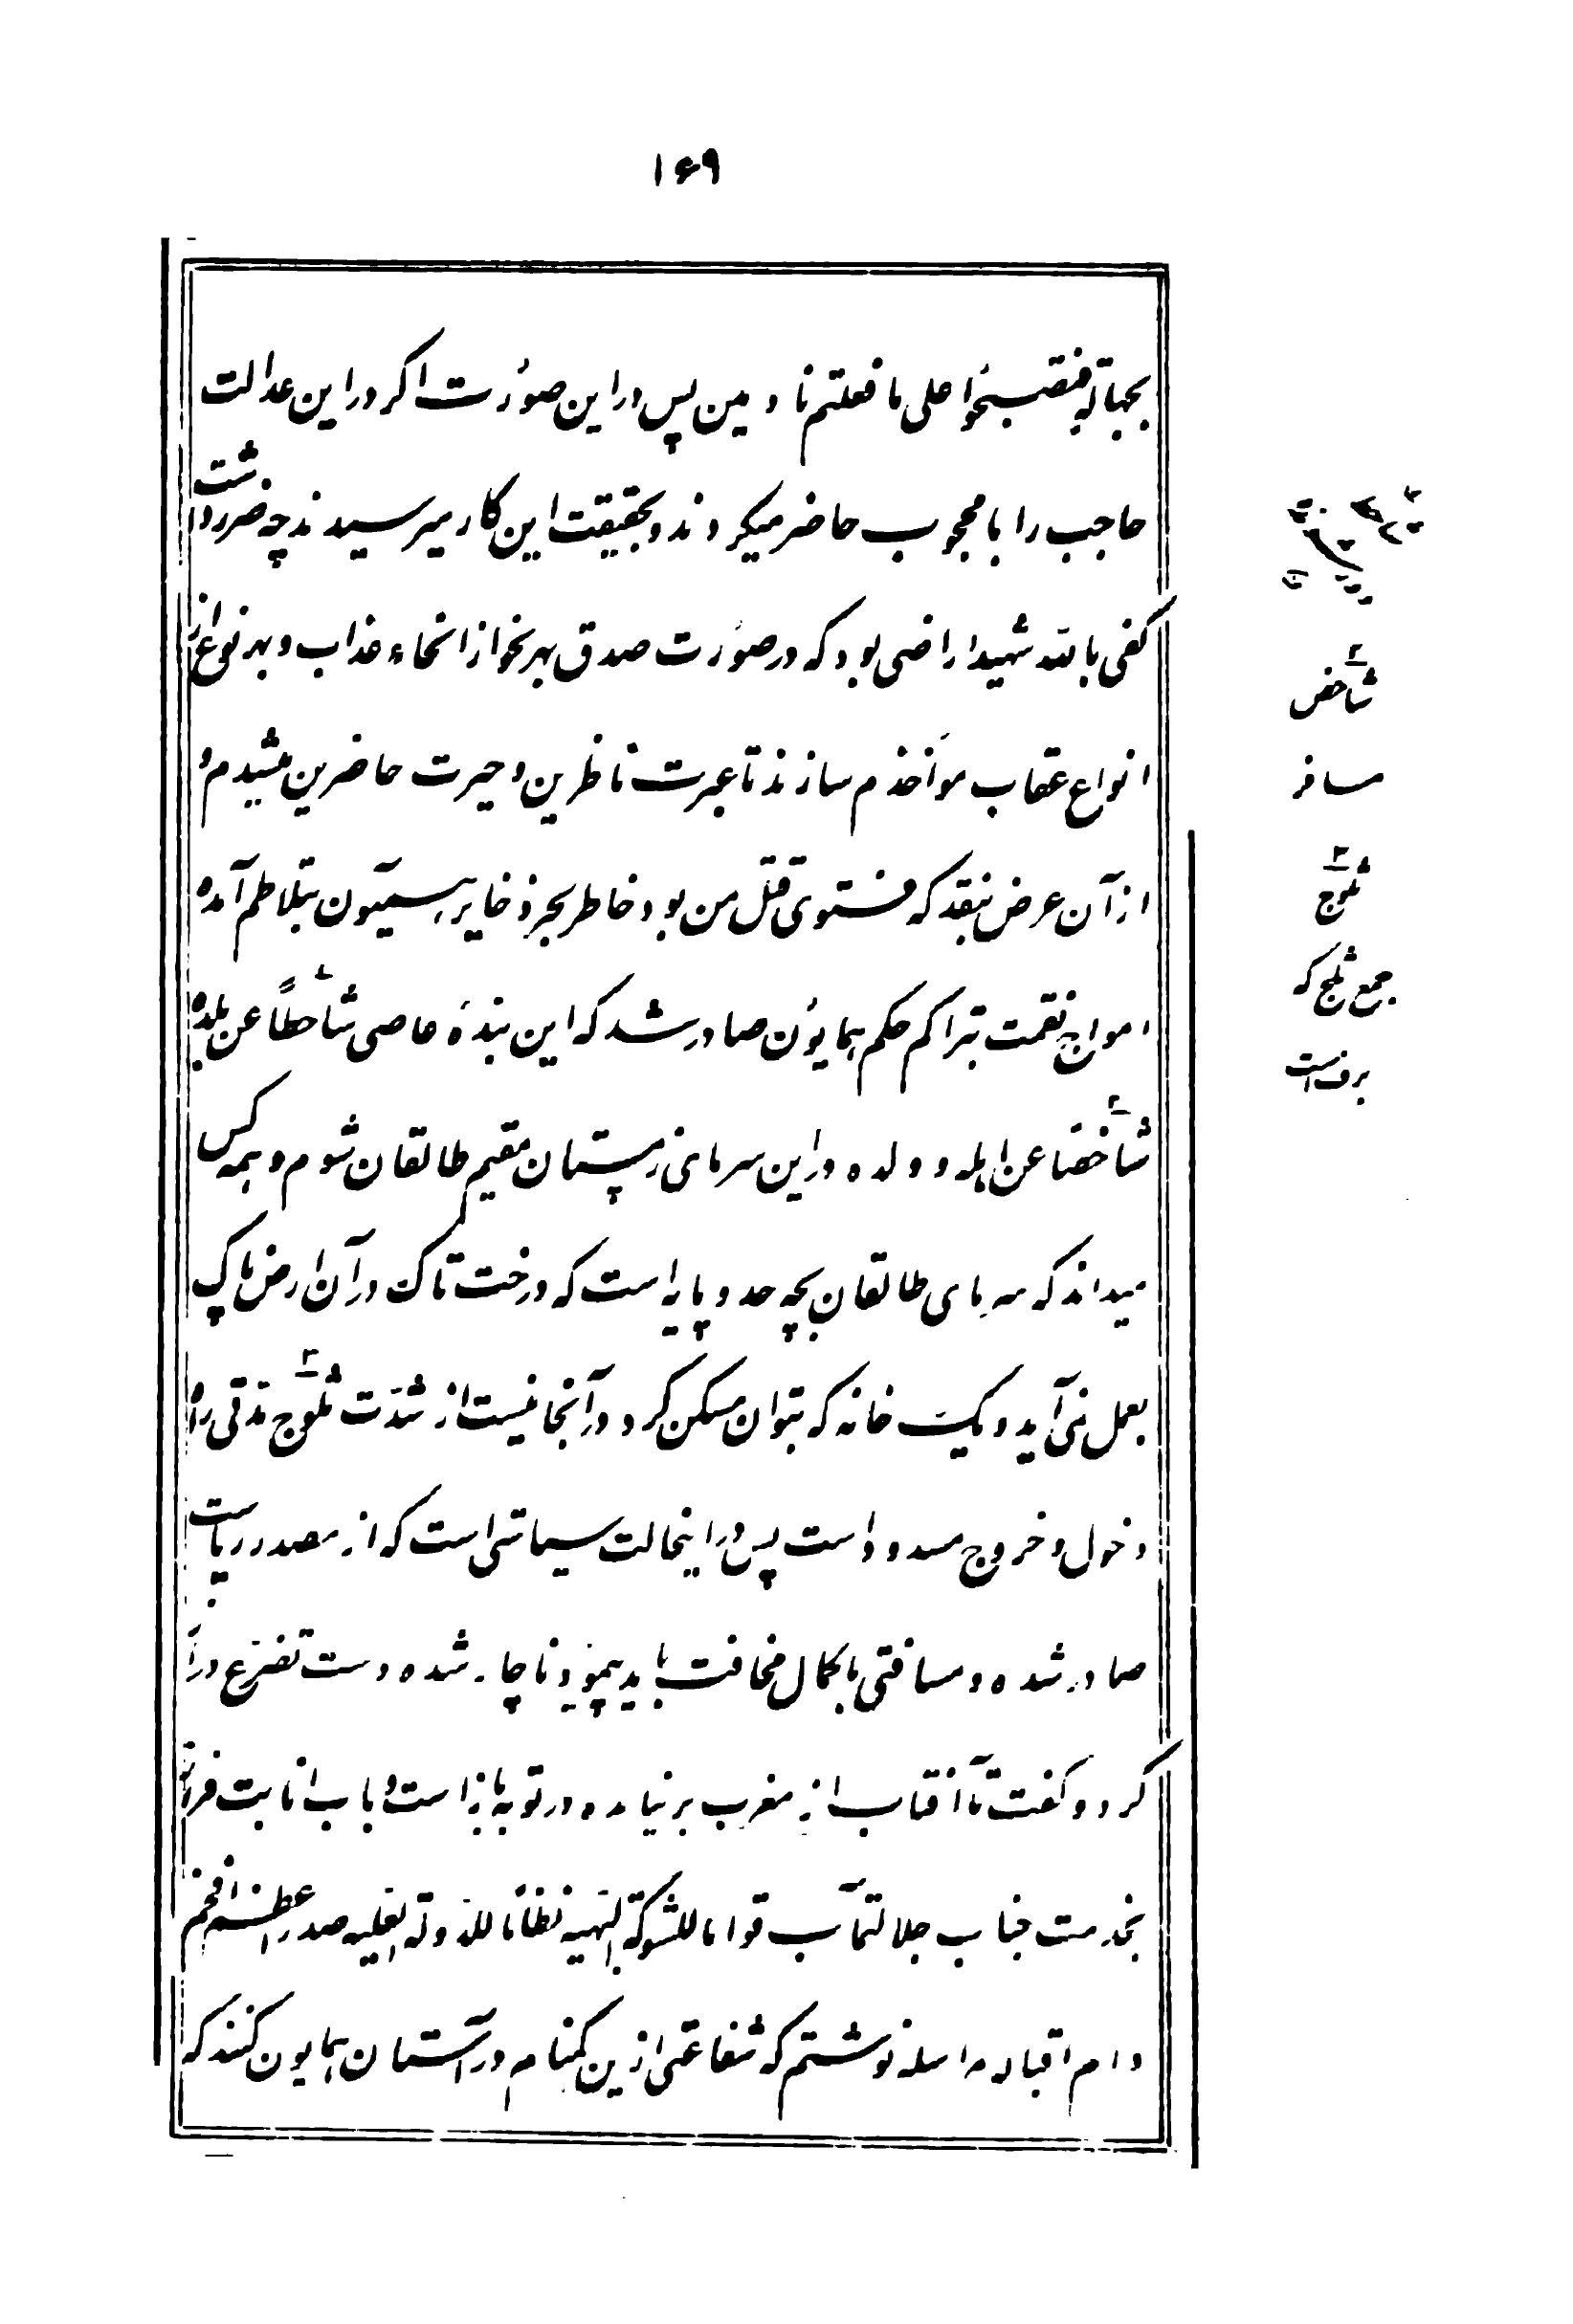 ۱۶۹
بجهالة فتصبحوا علی ما فعلتم نادمین پس در این صورت اگر در این عدالت
حاجب را با محجوب حاضر میکردند و بحقیقت این کار میرسیدند چه ضرر داشت
کفی بالله شهیدا راضی بود که در صورت صدق بهر نحو از انحاء عذاب و بهر نوع از
انواع عقاب مؤاخذم سازند تا عبرت ناظرین و حیرت حاضرین میشدم و
از آن عرض بنقد که فتوی قتل من بود خاطر بحر ذخایر همیون بتلاطم آمده
امواج نقمت بتراکم حکم همایون صادر شد که این بندهٔ عاصی شاحطاً عن بلده
شاخصا عن اهله و ولده در این سرمای زمستان مقیم طالقان شوم و همه کس
میداند که سرمای طالقان بچه حد و پایه است که درخت تاک در آن ارض پاک
بعمل نمی‌آید و یک خانه که بتوان مسکن کرد در آنجا نیست از شدت ثلوج مدتی راه
دخول و خروج مسدود است پس در اینحالت سیاستی است که از مصدر ریاست
صادر شده و مسافتی با کمال مخافت باید پیمود ناچار شده دست تضرع دراز
کرد و گفت تا آفتاب از مغرب برنیامده در توبه باز است و باب انابت فراز
بخدمت جناب جلالتمآب قواما للشوکة البهیه نظاما للدولة العلیه صدر اعظم افخم
دام اقباله مراسله نوشتم که شفاعتی ازین گمنام در آستان همایون کنند که
شاخص
مسافر
ثلوج
جمع ثلج که
برف است